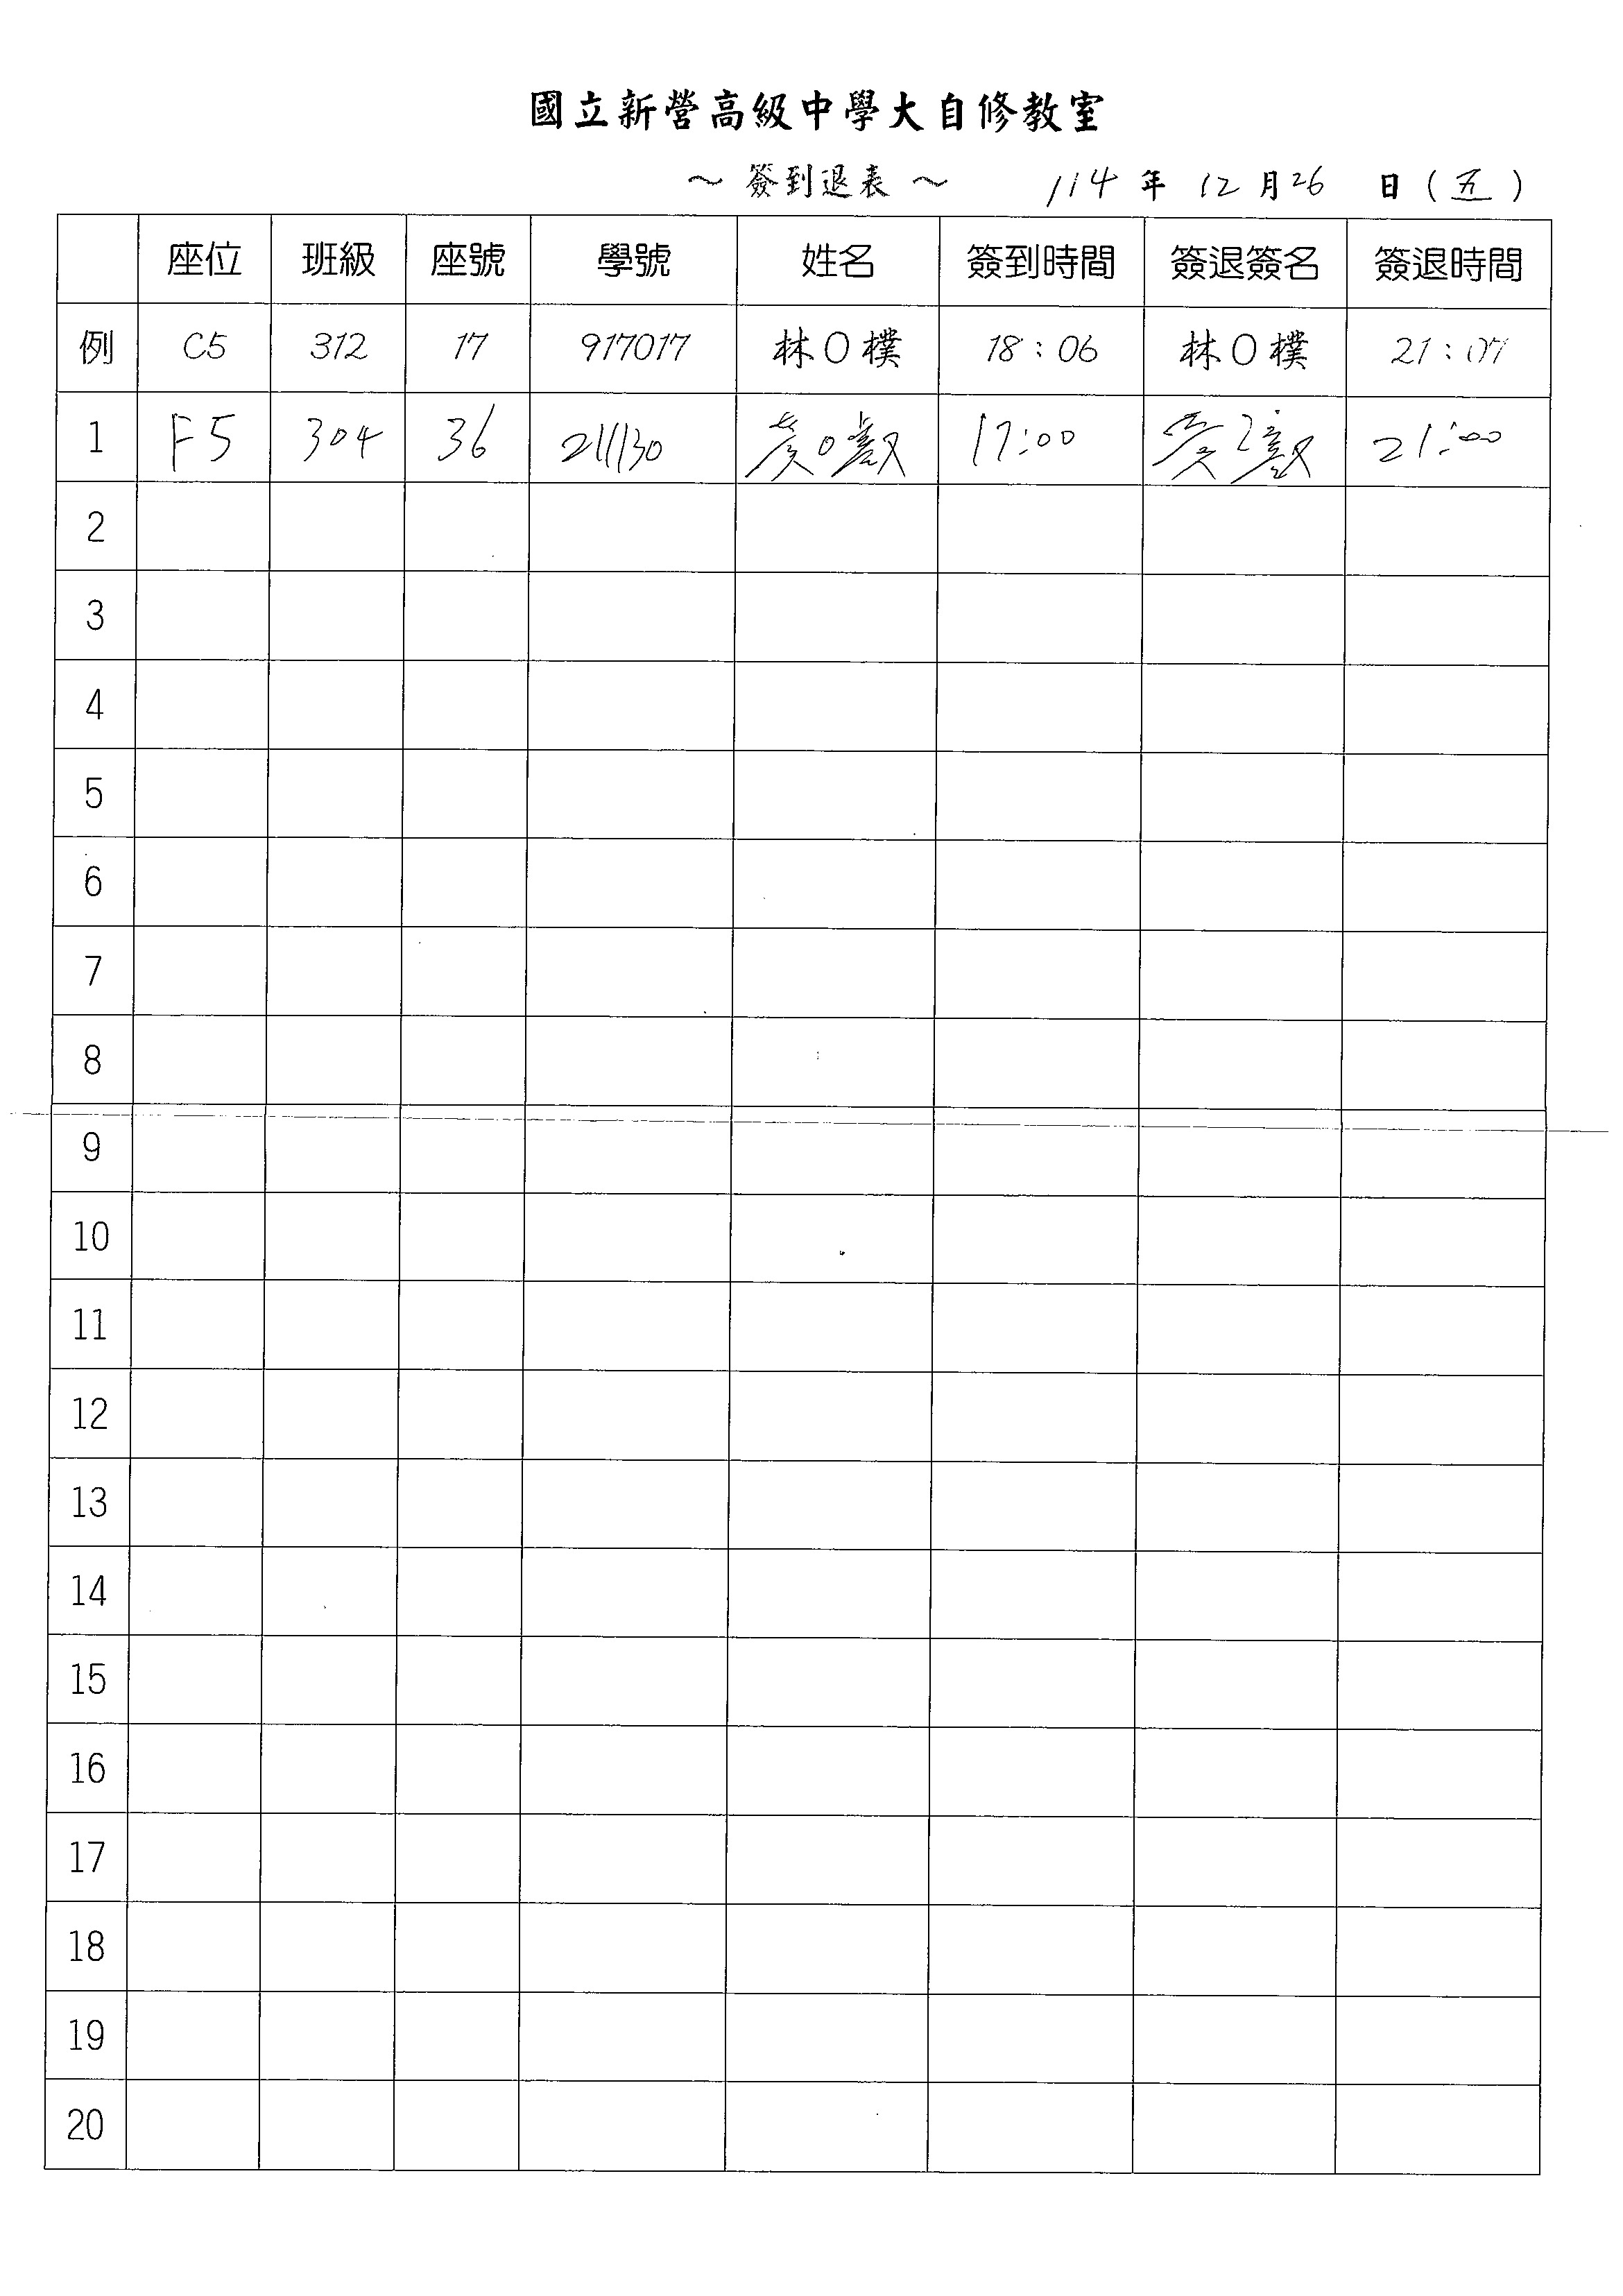 國立新營高級中學大自修教室
～ 簽到退表 ～ 114 年 12 月 26 日（五）
座位 班級 座號 學號 姓名 簽到時間 簽退簽名 簽退時間
例 C5 312 17 917017 林O樸 18：06 林O樸 21：07
1 F5 304 36 211130 17:00 21:00
2
3
4
5
6
7
8
9
10
11
12
13
14
15
16
17
18
19
20